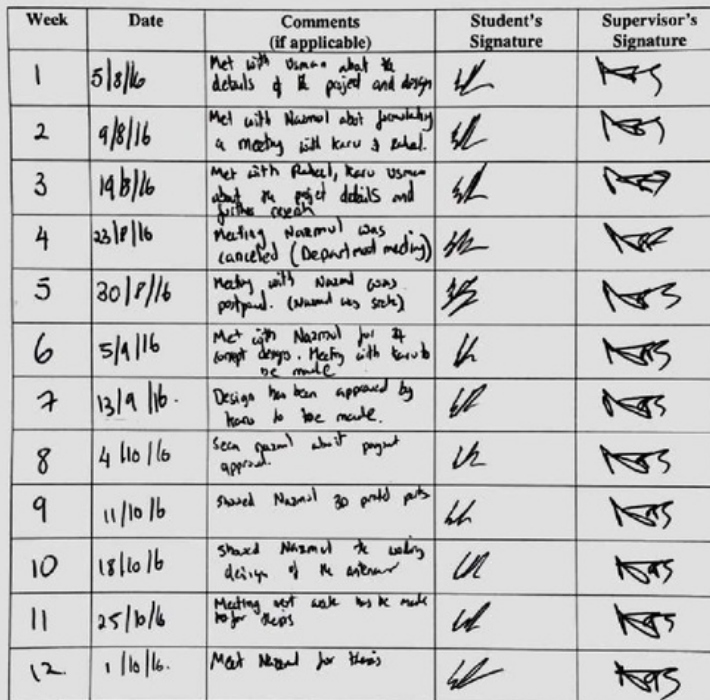 Week Date Comments (if applicable) Student's Signature Supervisor's Signature
1 5/8/16 Met with Usman about the
details of the project and design
2 9/8/16 Met with Nazmul about formulating
a meeting with Karu & Raheel.
3 19/8/16 Met with Raheel, Karu Usman
about the project details and
further research
4 23/8/16 Meeting Nazmul was
canceled (Department meeting)
5 30/8/16 Meeting with Nazmul was
postponed. (Nazmul was sick)
6 5/9/16 Met with Nazmul for
concept design. Meeting with Karu to
be made
7 13/9/16. Design has been approved by
Karu to be made.
8 4/10/16 Seen about payment
approval.
9 11/10/16 showed Nazmul 3D printed parts
10 18/10/16 showed Nazmul the
design of the antenna
11 25/10/16 Meeting next week to be made
for thesis
12. 1/10/16. Meet Nazmul for thesis